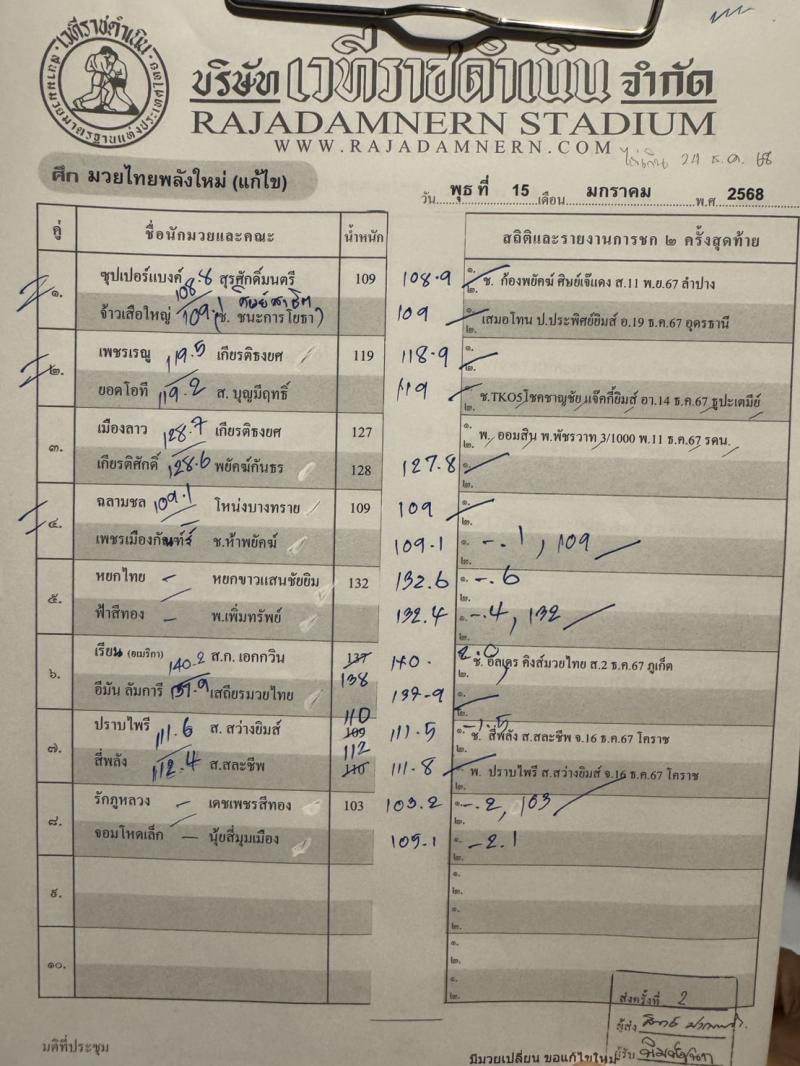 เวทีราชดำเนิน
สนามมวยมาตรฐานแห่งประเทศไทย
บริษัท เวทีราชดำเนิน จำกัด
RAJADAMNERN STADIUM
WWW.RAJADAMNERN.COM
24 ธ.ค. 68
ศึก มวยไทยพลังใหม่ (แก้ไข)
วัน พุธ ที่ 15 เดือน มกราคม พ.ศ 2568
คู่ ชื่อนักมวยและคณะ น้ำหนัก สถิติและรายงานการชก ๒ ครั้งสุดท้าย
๑. ซุปเปอร์แบงค์ 108.8 สุรศักดิ์มนตรี 109 108.9 ๑. ๒. ช. ก้องพยัคฆ์ ศิษย์เจ๊แดง ส.11 พ.ย.67 ลำปาง
จ้าวเสือใหญ่ 109.1 (ช. ชนะการโยธา) 109 ๑. เสมอโทน ป.ประพิศย์ยิมส์ อ.19 ธ.ค.67 อุดรธานี
๒. เพชรเรณู 119.5 เกียรติธงยศ 119 118.9 ๑. ๒.
ยอดโอที 119.2 ส. บุญมีฤทธิ์ 119 ๑. ๒. ช.TKO5 โชคชาญชัย แจ๊คกี้ยิมส์ อา.14 ธ.ค.67 ธูปะเตมีย์
๓. เมืองลาว 128.7 เกียรติธงยศ 127 ๑. ๒. พ. ออมสิน พ.พัชรวาท 3/1000 พ.11 ธ.ค.67 รดน.
เกียรติศักดิ์ 128.6 พยัคฆ์กันธร 128 127.8 ๑. ๒.
๔. ฉลามชล 109.1 โหน่งบางทราย 109 109 ๑. ๒.
เพชรเมืองกัณฑ์ ช.ห้าพยัคฆ์ 109.1 ๑. -.1, 109 ๒.
๕. หยกไทย - หยกขาวแสนชัยยิม 132 132.6 ๑. -.6 ๒.
ฟ้าสีทอง - พ.เพิ่มทรัพย์ 132.4 ๑. -.4, 132 ๒.
๖. เรียน (อเมริกา) 140.2 ส.ก. เอกกวิน 137 138 140. 2.0 ๒. ช. อัลเดร คิงส์มวยไทย ส.2 ธ.ค.67 ภูเก็ต
อีมัน ลัมการี 137.9 เสถียรมวยไทย 137.9 ๑. ๒.
๗. ปราบไพรี 111.6 ส. สว่างยิมส์ 110 109 111.5 ๑. -1.5 ๒. ช. สี่พลัง ส.สละชีพ จ.16 ธ.ค.67 โคราช
สี่พลัง 112.4 ส.สละชีพ 112 110 111.8 ๑. พ. ปราบไพรี ส.สว่างยิมส์ จ.16 ธ.ค.67 โคราช
๘. รักภูหลวง - เดชเพชรสีทอง 103 103.2 ๑. -.2, 103 ๒.
จอมโหดเล็ก - นุ้ยสี่มุมเมือง 105.1 ๑. -2.1 ๒.
๙. ๑. ๒.
๑. ๒.
๑๐. ๑. ๒.
๑. ๒.
ส่งครั้งที่ 2
ผู้ส่ง
ผู้รับ
มติที่ประชุม
มีมวยเปลี่ยน ขอแก้ไขใหม่